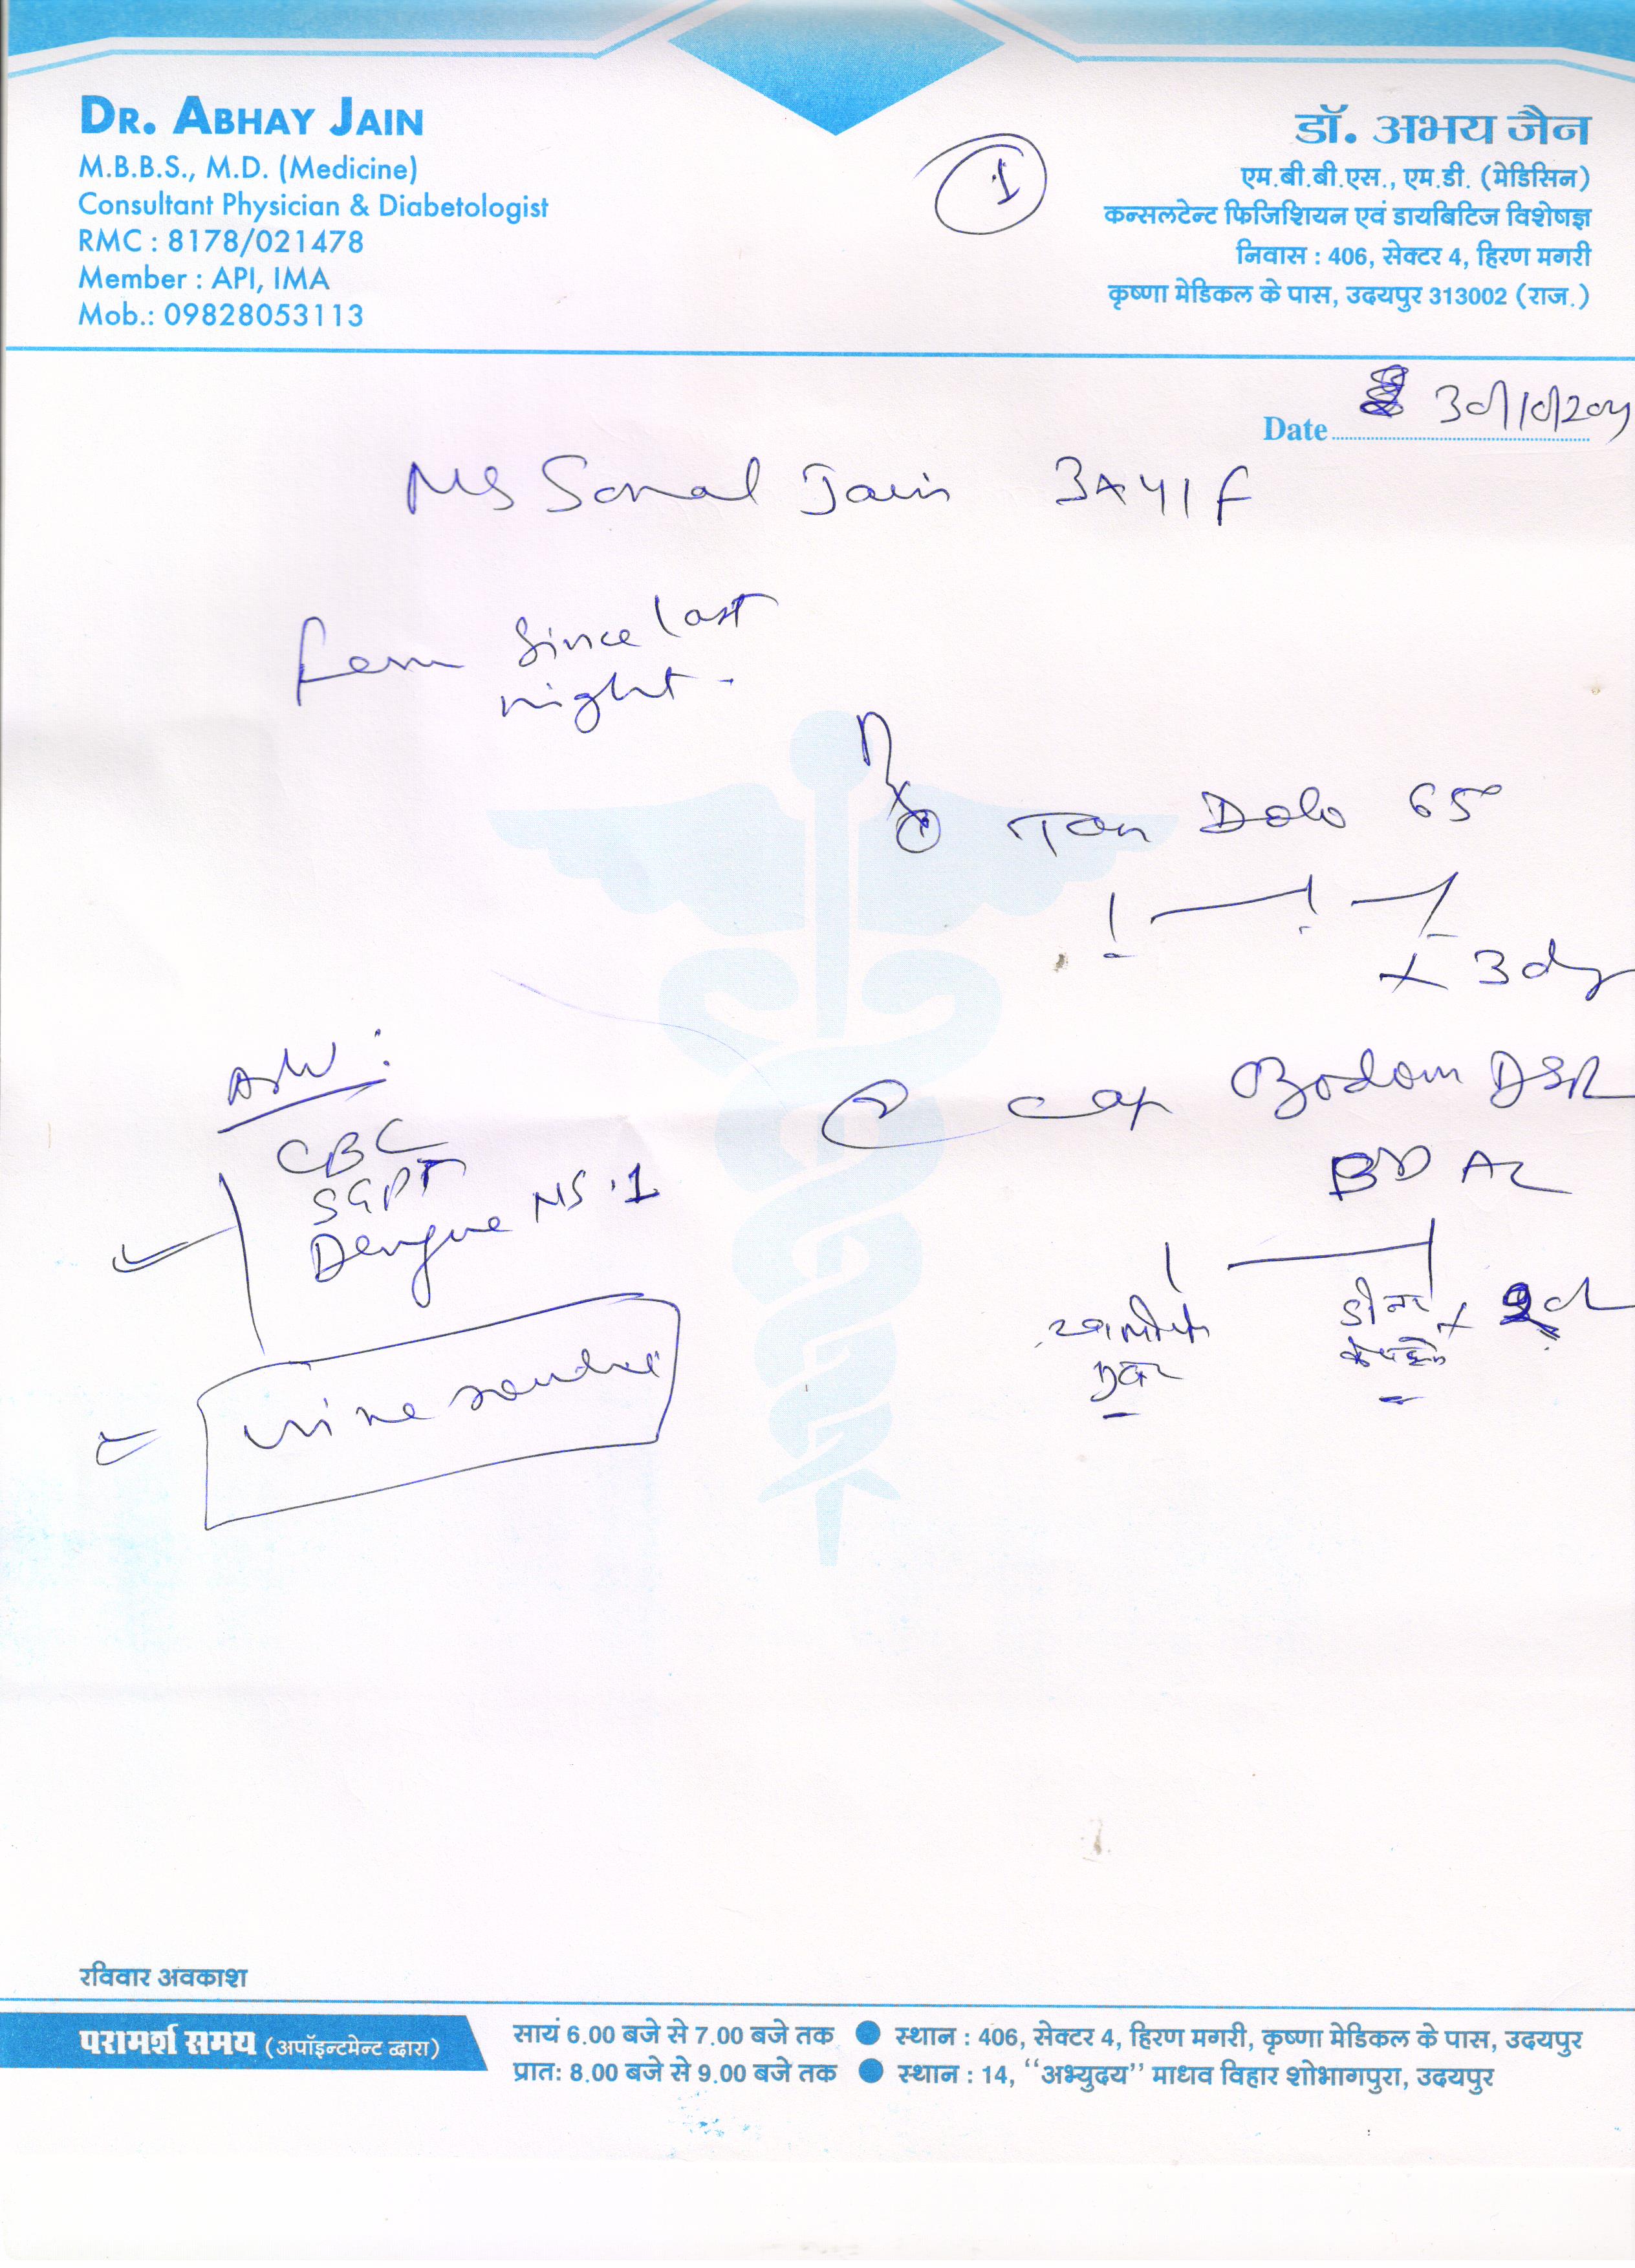 DR. ABHAY JAIN
M.B.B.S., M.D. (Medicine)
Consultant Physician & Diabetologist
RMC : 8178/021478
Member : API, IMA
Mob.: 09828053113
1
डॉ. अभय जैन
एम.बी.बी.एस., एम.डी. (मेडिसिन)
कन्सलटेन्ट फिजिशियन एवं डायबिटिज विशेषज्ञ
निवास : 406, सेक्टर 4, हिरण मगरी
कृष्णा मेडिकल के पास, उदयपुर 313002 (राज.)
Date
Ms Sonal Jain
since last
night -
Dolo 650
x 3
CBC
SGPT
Dengue NS.1
② Cap DSR
BD
urine
रविवार अवकाश
परामर्श समय (अपॉइन्टमेन्ट द्वारा)
सायं 6.00 बजे से 7.00 बजे तक ● स्थान : 406, सेक्टर 4, हिरण मगरी, कृष्णा मेडिकल के पास, उदयपुर
प्रात: 8.00 बजे से 9.00 बजे तक ● स्थान : 14, ‘‘अभ्युदय’’ माधव विहार शोभागपुरा, उदयपुर